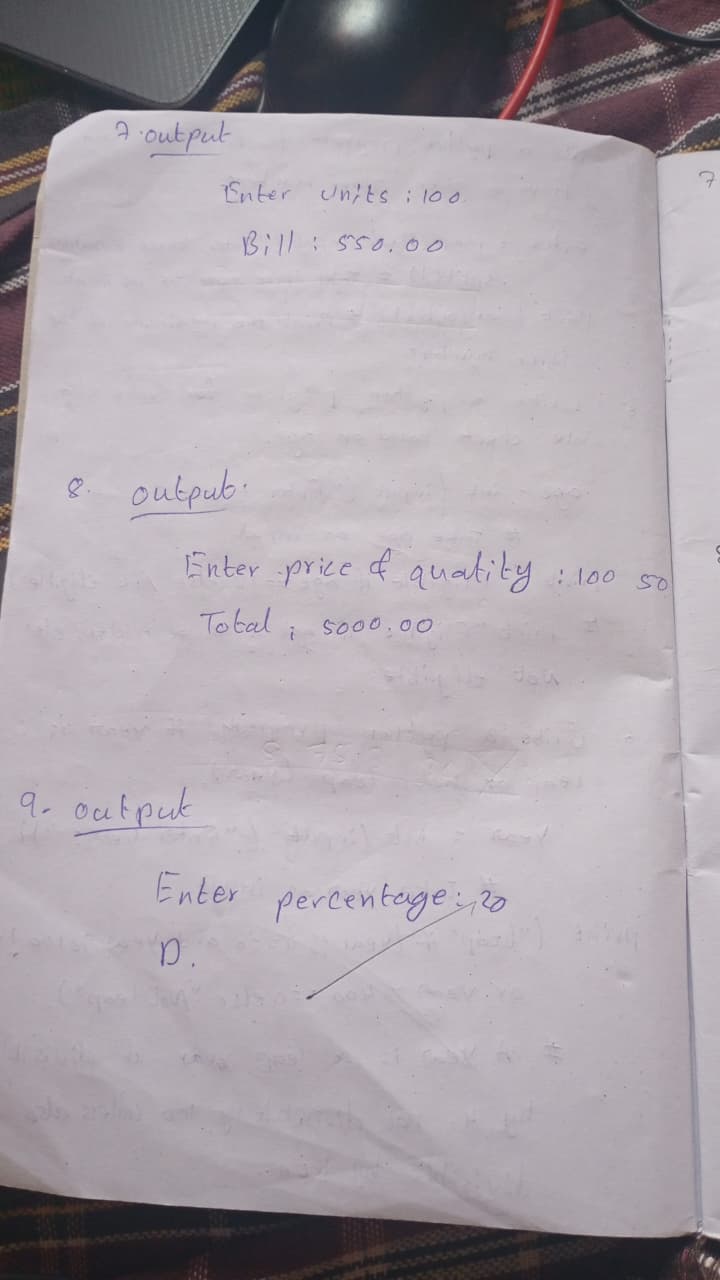 7. output
Enter Units : 100
Bill : 550.00
8. output.
Enter price & quatity : 100 50
Total ; 5000.00
9. output
Enter percentage : 20
D.
7